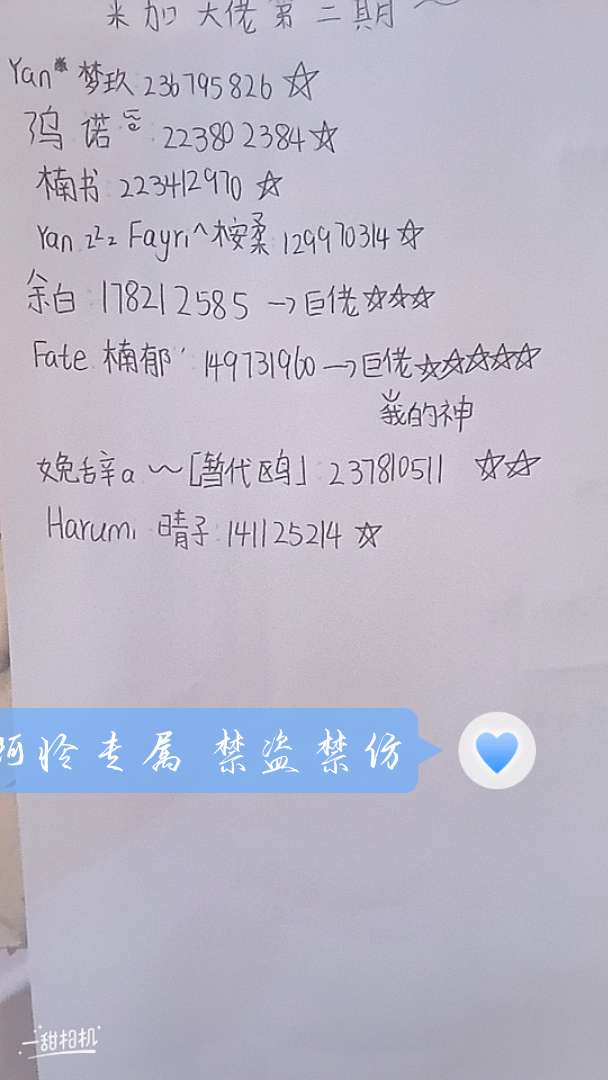 米加大佬第二期~
Yan* 梦玖 236795826 ☆
鸿诺 : 223802384 ☆
楠书 : 223412970 ☆
Yan z²z Fayri^桉柔 129970314 ☆
余白 : 178212585 →巨佬☆☆☆
Fate 楠郁' : 149731960 →巨佬☆☆☆☆☆
我的神
婏辞a ~[暂代鸥」: 237810511 ☆☆
Harumi 晴子 : 141125214 ☆
阿怜专属 禁盗禁仿
一甜相机